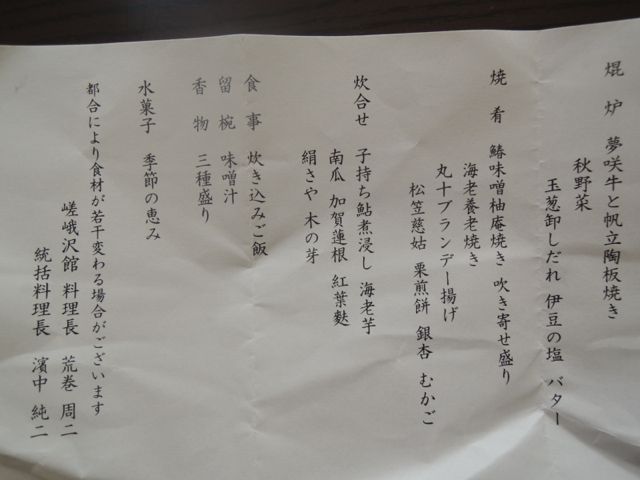 焜炉 夢咲牛と帆立陶板焼き
秋野菜
玉葱卸しだれ 伊豆の塩 バター
焼肴 鰆味噌柚庵焼き 吹き寄せ盛り
海老養老焼き
丸十ブランデー揚げ
松笠慈姑 栗煎餅 銀杏 むかご
炊合せ 子持ち鮎煮浸し 海老芋
南瓜 加賀蓮根 紅葉麩
絹さや 木の芽
食事 炊き込みご飯
留椀 味噌汁
香物 三種盛り
水菓子 季節の恵み
都合により食材が若干変わる場合がございます
嵯峨沢館 料理長 荒巻 周二
統括料理長 濱中 純二